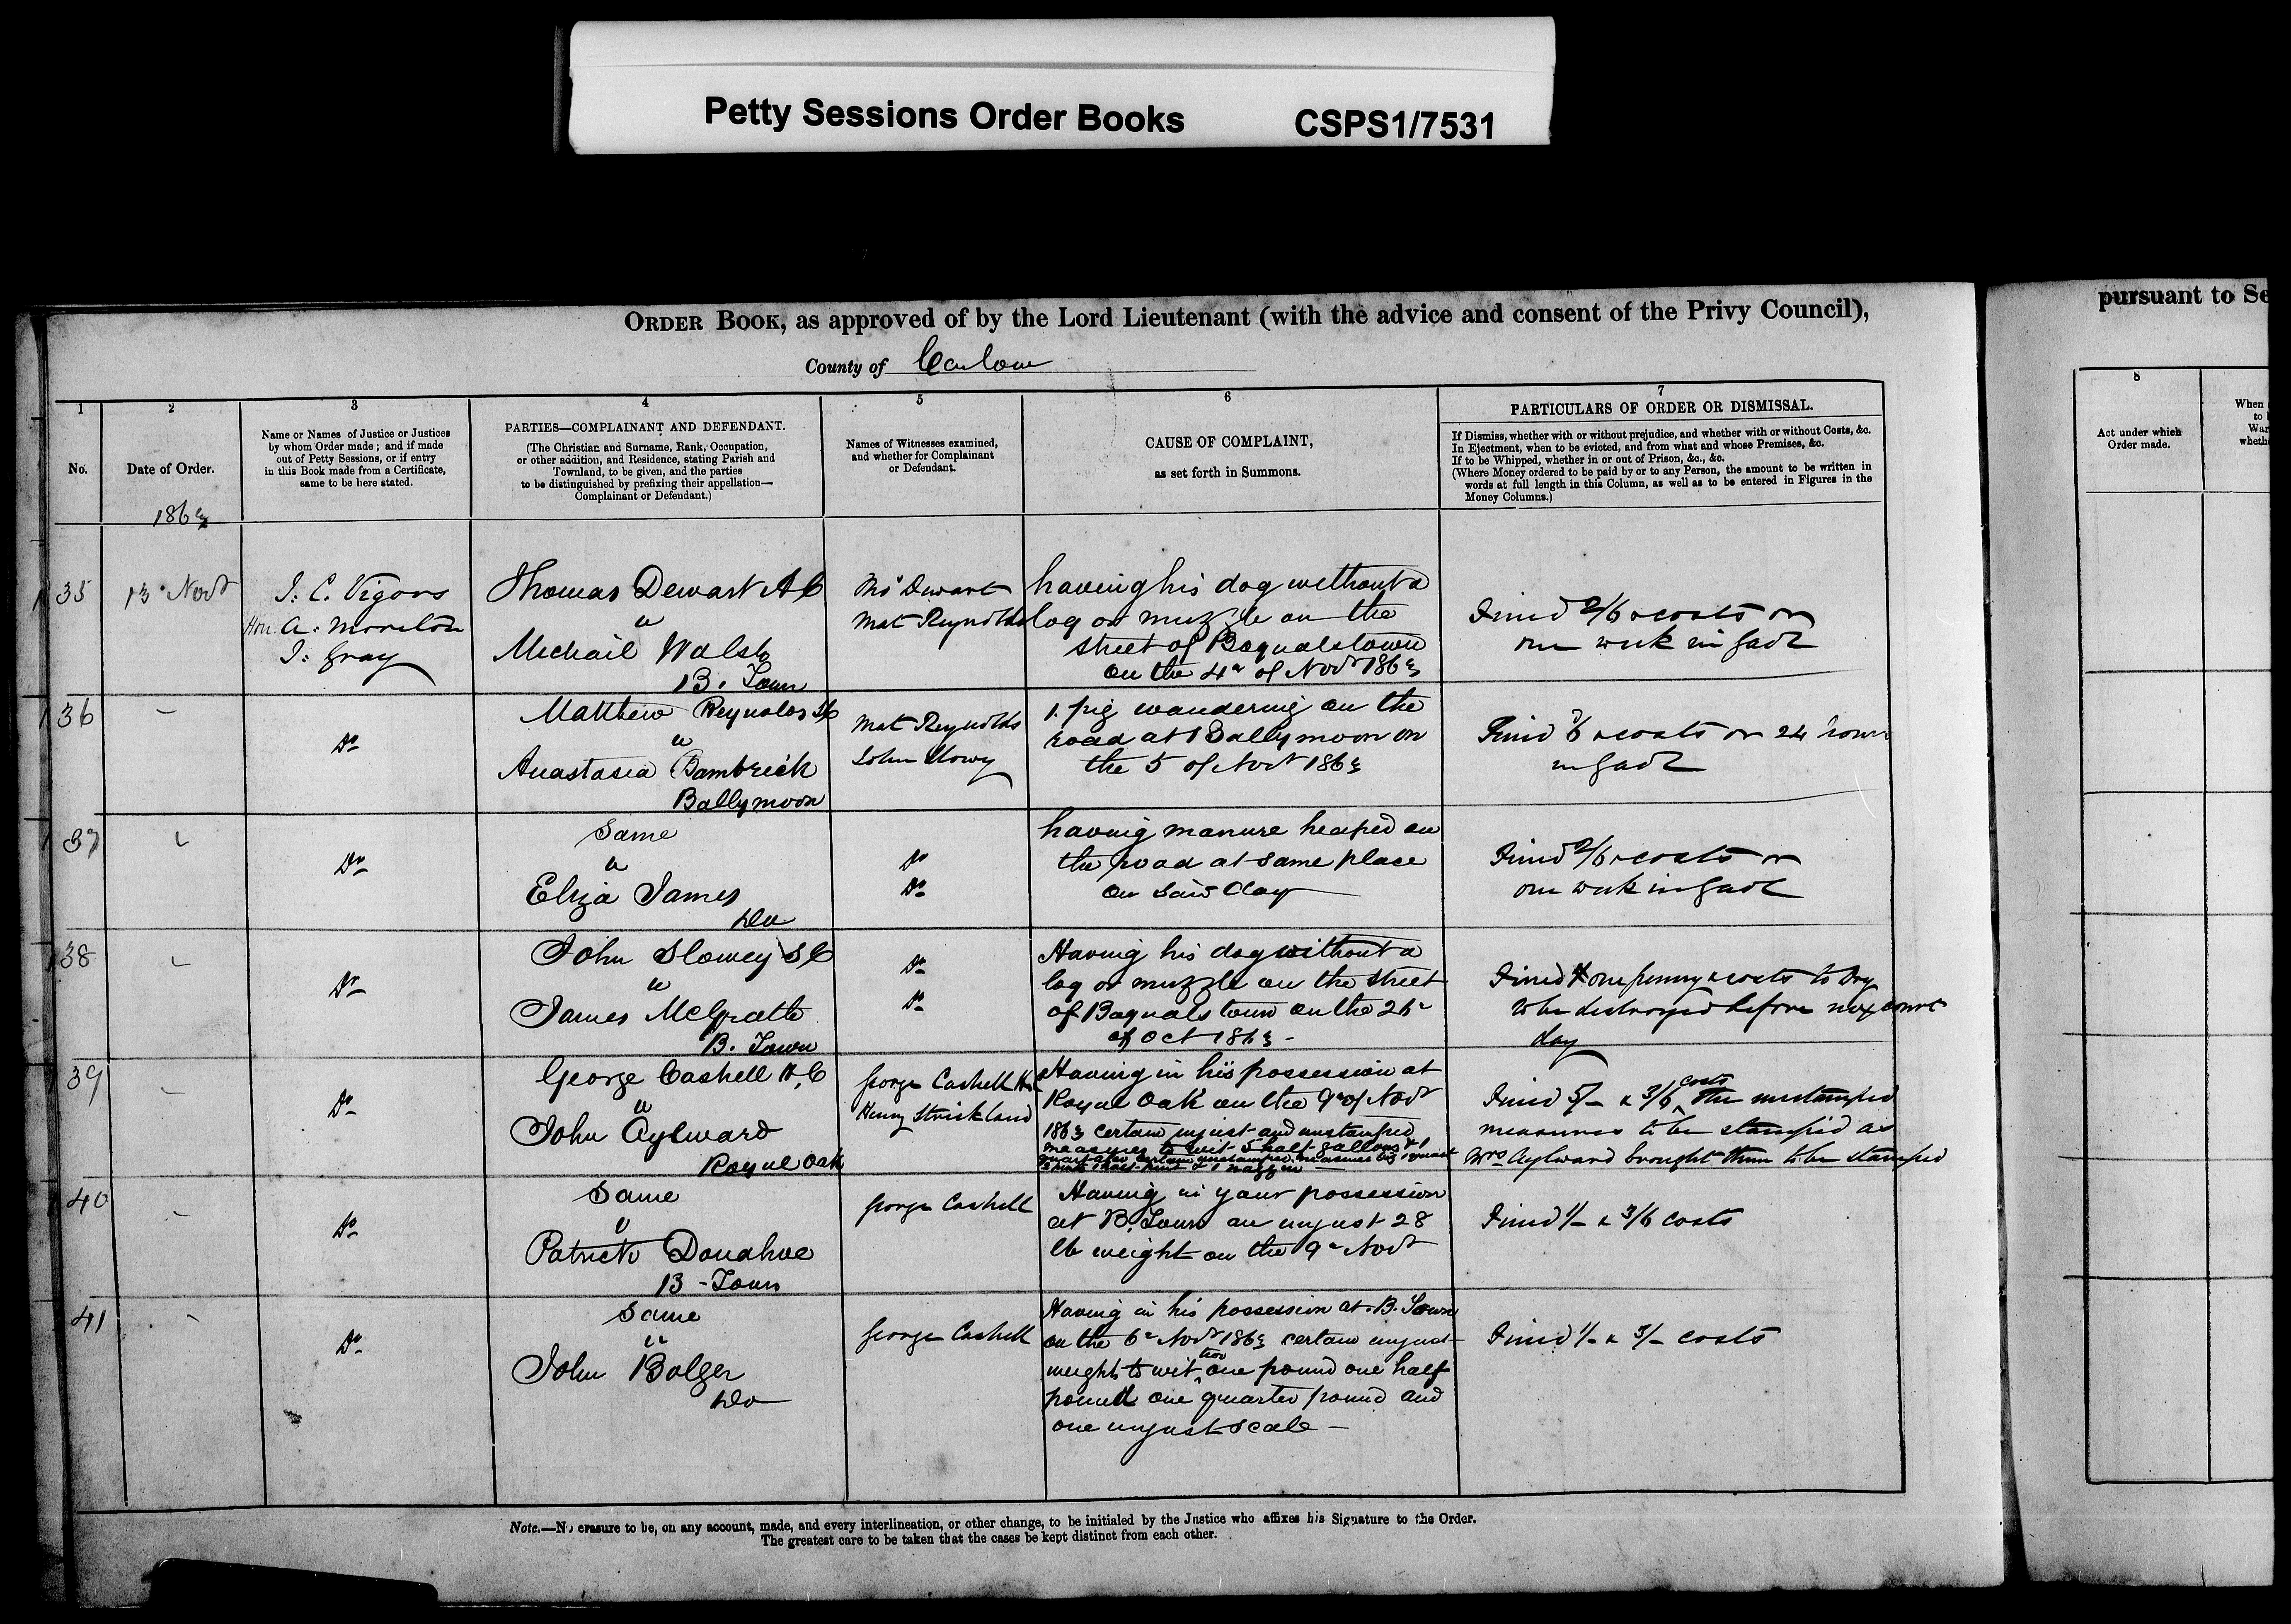 Petty Sessions Order Books CSPS1/7531
ORDER BOOK, as approved of by the Lord Lieutenant (with the advice and consent of the Privy Council),
pursuant to Se
County of Carlow
1
No.
2
Date of Order.
1863
3
Name or Names of Justice or Justices
by whom Order made; and if made
out of Petty Sessions, or if entry
in this Book made from a Certificate,
same to be here stated.
4
PARTIES—COMPLAINANT AND DEFENDANT.
(The Christian and Surname, Rank, Occupation,
or other addition, and Residence, stating Parish and
Townland, to be given, and the parties
to be distinguished by prefixing their appellation—
Complainant or Defendant.)
5
Names of Witnesses examined,
and whether for Complainant
or Defendant.
6
CAUSE OF COMPLAINT,
as set forth in Summons.
7
PARTICULARS OF ORDER OR DISMISSAL.
If Dismiss, whether with or without prejudice, and whether with or without Costs, &c.
In Ejectment, when to be evicted, and from what and whose Premises, &c.
If to be Whipped, whether in or out of Prison, &c., &c.
(Where Money ordered to be paid by or to any Person, the amount to be written in
words at full length in this Column, as well as to be entered in Figures in the
Money Columns.)
8
Act under which
Order made.
When
to
War
wheth
35
13 Novr
J. C. Vigors
Hon. A. Moreton
J. Gray
Thomas Dewart A C
v
Michail Walsh
B. Town
Ths Dewart
Mat Reynolds
having his dog without a
log or muzzle on the
street of Bagnalstown
on the 4th of Novr 1863
Fined 2/6 & costs or
one week in gaol
36
Do
Matthew Reynolds SC
v
Anastasia Bambrick
Ballymoon
Mat Reynolds
John Slowy
1 pig wandering on the
road at Ballymoon on
the 5 of Novr 1863
Fined 6 & costs or 24 hours
in gaol
37
Do
Same
v
Eliza James
Do
Do
Do
having manure heaped on
the road at same place
on said day
Fined 2/6 & costs or
one week in gaol
38
Do
John Slowey S C
v
James McGrath
B. Town
Do
Do
Having his dog without a
log or muzzle on the street
of Bagnalstown on the 26
of Oct 1863 -
Fined one penny & costs to Dog
to be destroyed before next court
day
39
Do
George Cashell H.C
v
John Aylward
Royal Oak
George Cashell Hd
Henry Strickland
Having in his possession at
Royal Oak on the 9th of Novr
1863 certain unjust and unstamped
measures to wit 5 half gallons & 1
quart also certain unstamped measures viz 1 quart
1 pint 1 half pint & 1 naggin
Fined 5/- & 3/6 costs the unstamped
measures to be stamped as
Mrs Aylward brought them to be stamped
40
Do
Same
v
Patrick Donahoe
B - Town
George Cashell
Having in your possession
at B. Town an unjust 28
lb weight on the 9th Novr
Fined 1/- & 3/6 costs
41
Do
Same
v
John Bolger
Do
George Cashell
Having in his possession at B. Town
on the 6th Novr 1863 certain unjust
weights to wit two one pound one half
pound one quarter pound and
one unjust scale -
Fined 1/- & 5/- costs
Note.—No erasure to be, on any account, made, and every interlineation, or other change, to be initialed by the Justice who affixes his Signature to the Order.
The greatest care to be taken that the cases be kept distinct from each other.